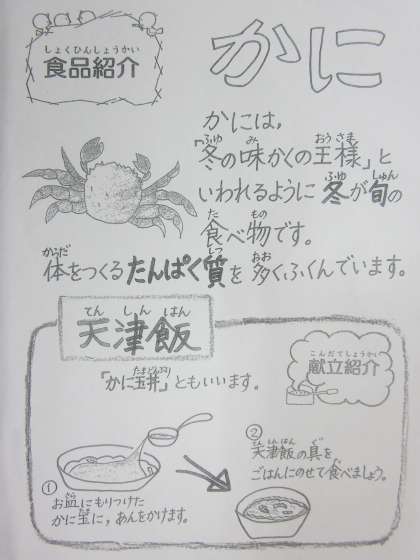 しょくひんしょうかい
食品紹介
かに
かには,
ふゆ み おうさま
「冬の味かくの王様」と
ふゆ しゅん
いわれるように冬が旬の
た もの
食べ物です。
からだ しつ おお
体をつくるたんぱく質を多くふくんでいます。
てんしんはん
天津飯
たまどんぶり
「かに玉丼」ともいいます。
こんだてしょうかい
献立紹介
①
さら
お皿にもりつけた
たま
かに玉に,あんをかけます。
②
てんしんはん ぐ
天津飯の具を
た
ごはんにのせて食べましょう。